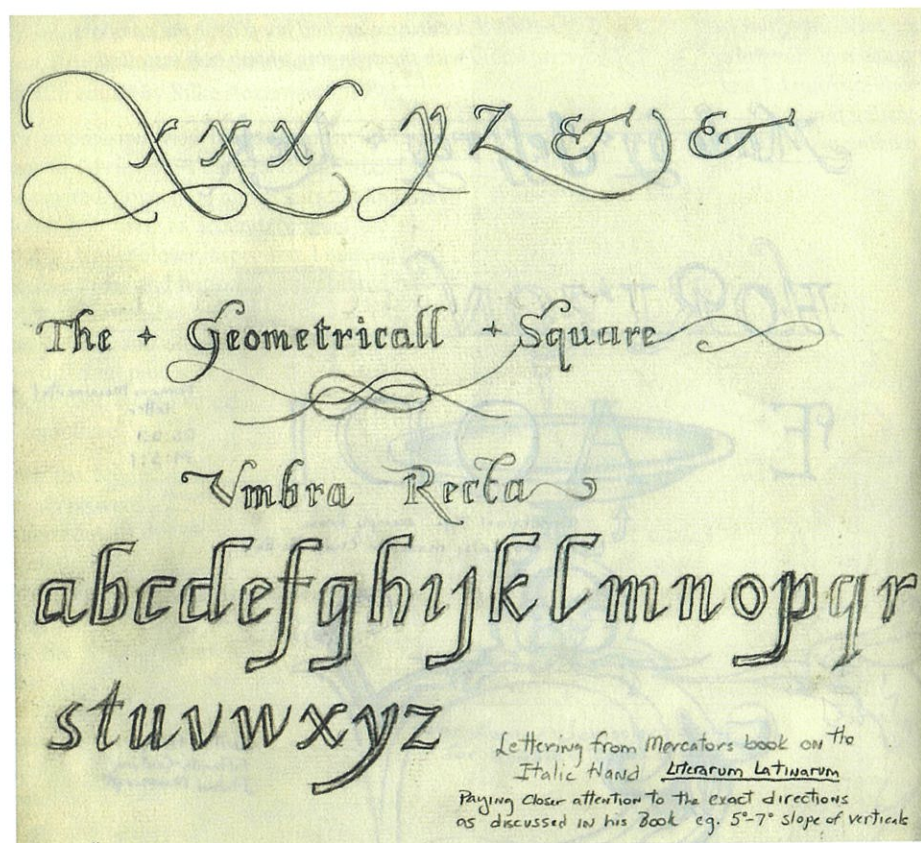 X x x x y z & &
The + Geometricall + Square
Vmbra Recta
abcdefghijklmnopqr
stuvwxyz
Lettering from Mercators book on the
Italic Hand Literarum Latinarum
Paying closer attention to the exact directions
as discussed in his Book eg. 5°-7° slope of verticals